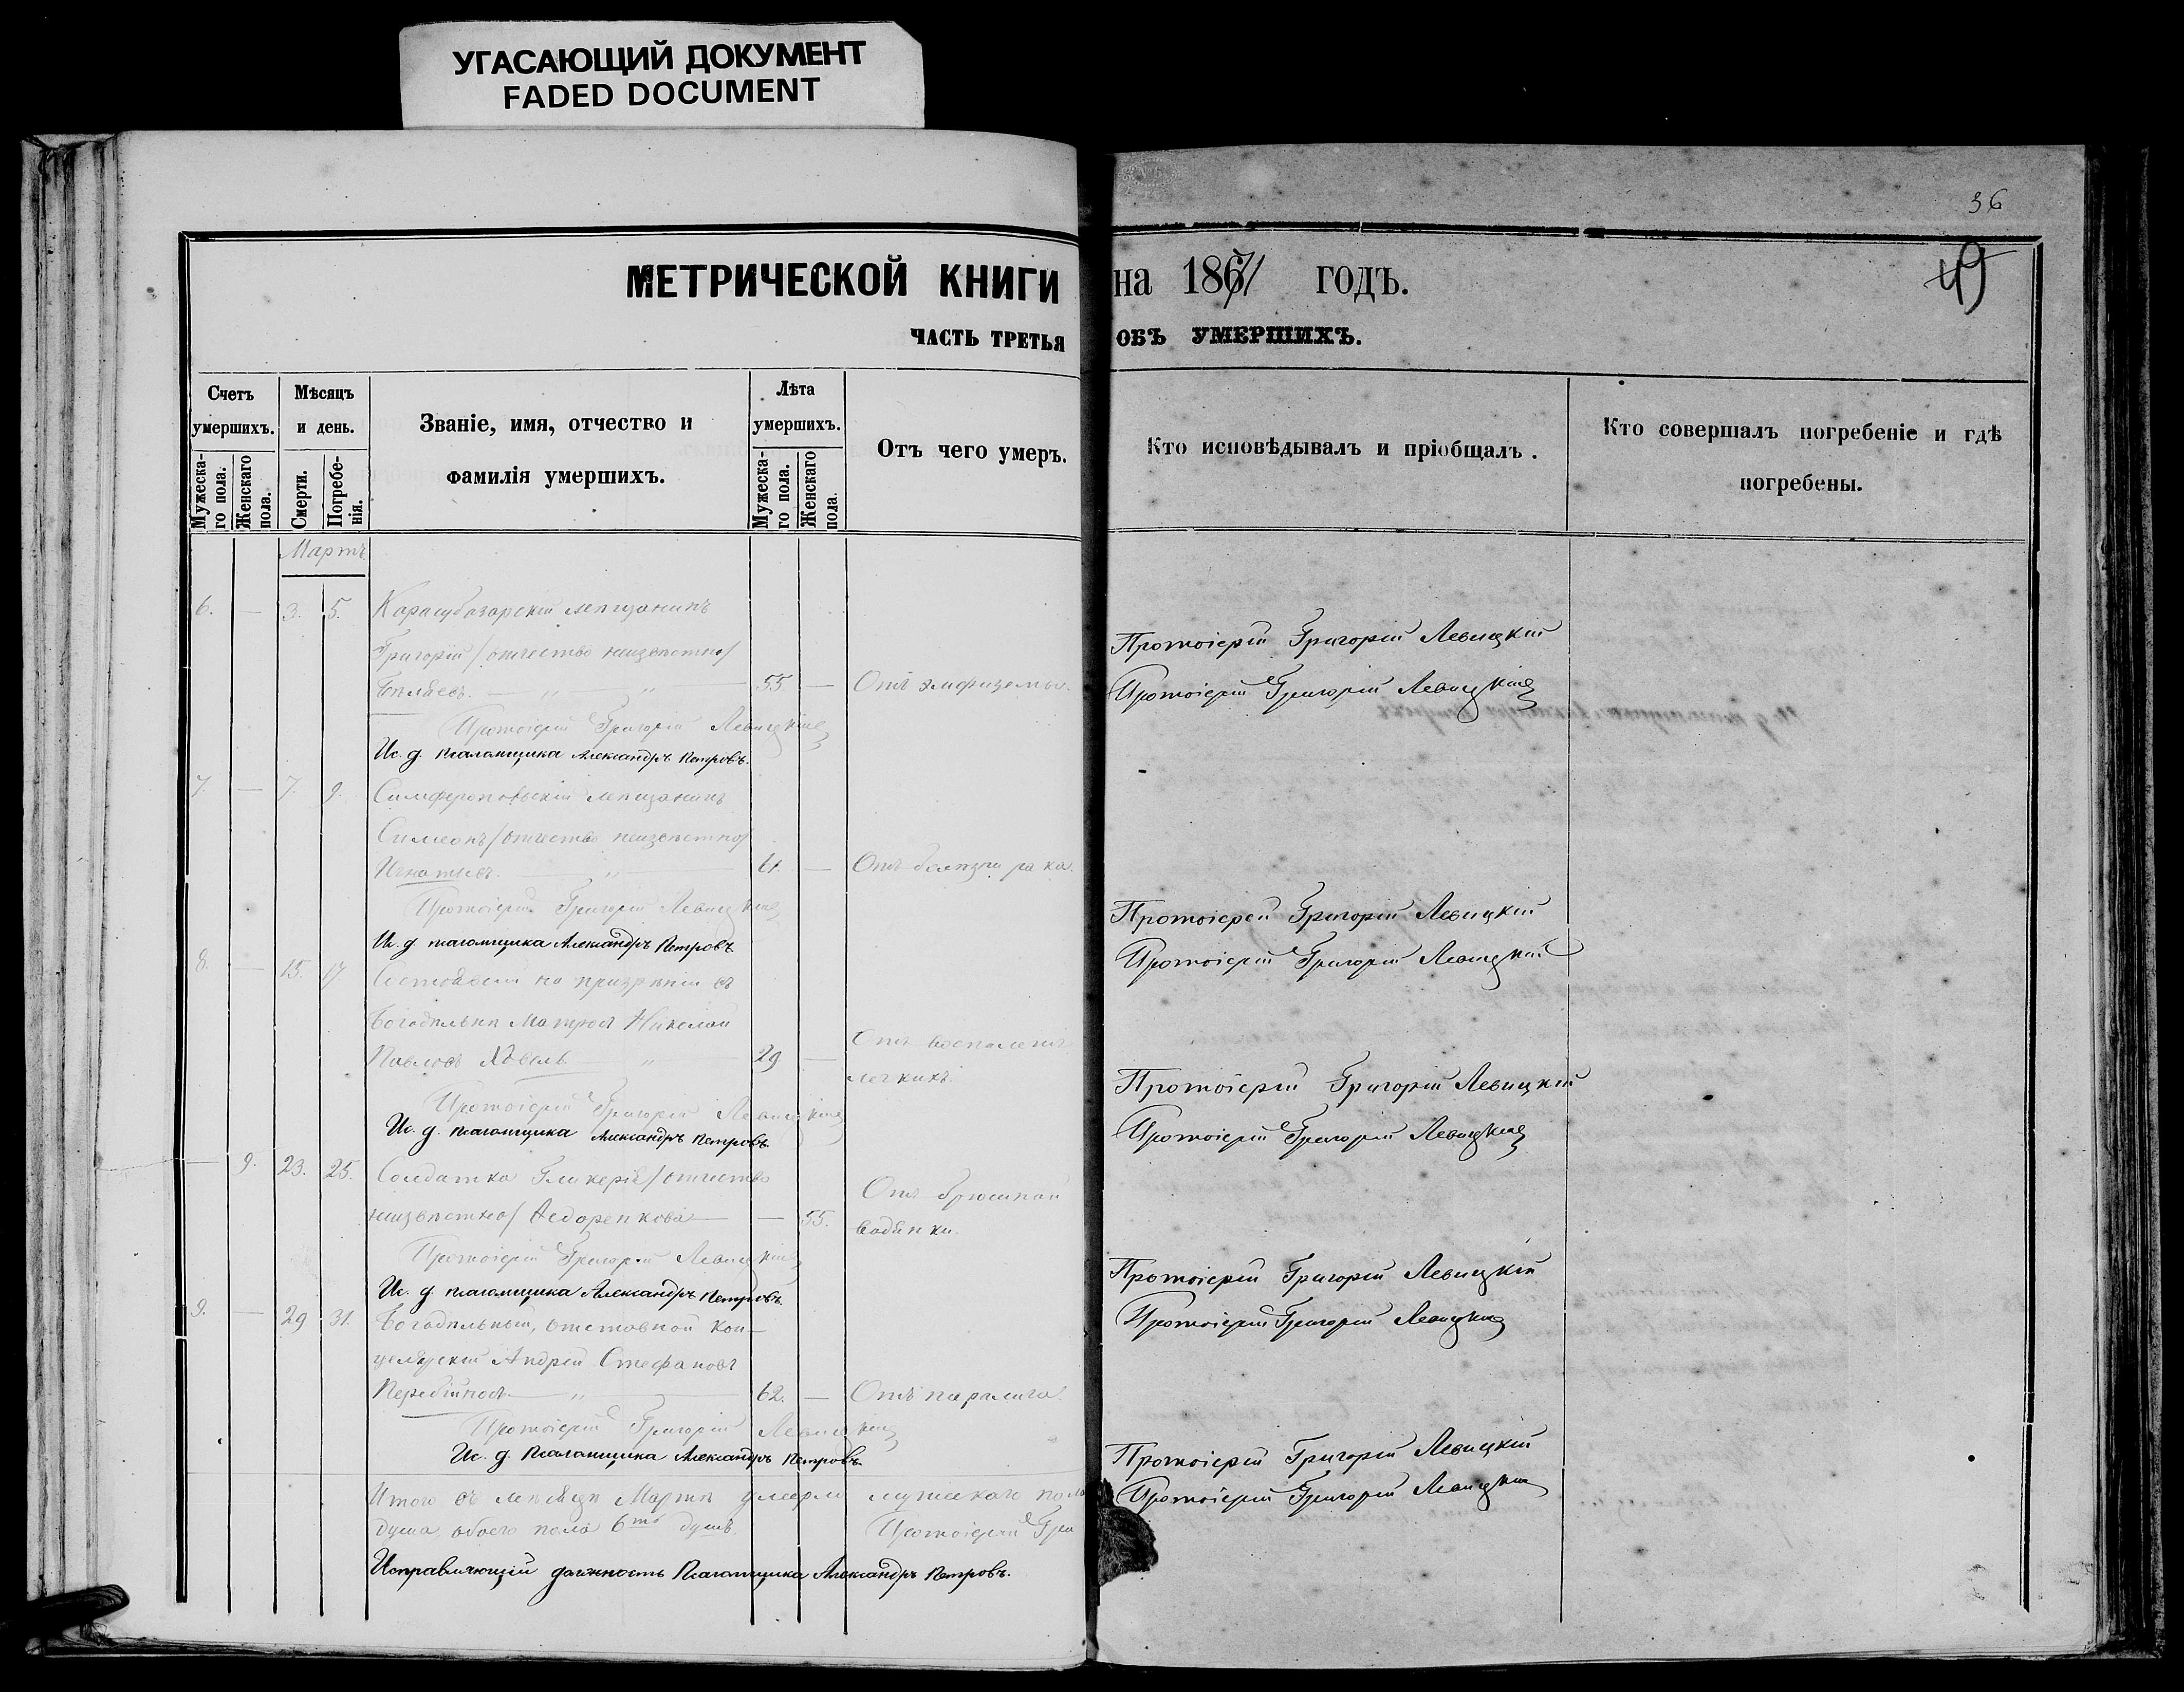 УГАСАЮЩИЙ ДОКУМЕНТ
FADED DOCUMENT
36
49
МЕТРИЧЕСКОЙ КНИГИ на 1871 годъ.
ЧАСТЬ ТРЕТЬЯ ОБЪ УМЕРШИХЪ.
Счетъ умершихъ.
Мужескаго пола.
Женскаго пола.
Мѣсяцъ и день.
Смерти.
Погребенія.
Званіе, имя, отчество и
фамилія умершихъ.
Лѣта умершихъ.
Мужескаго пола.
Женскаго пола.
Отъ чего умеръ.
Кто исповѣдывалъ и пріобщалъ.
Кто совершалъ погребеніе и гдѣ
погребены.
Мартъ
6. — 3. 5. Карасубазарскій мѣщанинъ
Григорій /отчество неизвѣстно/
Бѣляевъ. — „ — „ — 55 — Отъ эмфиземы.
Протоіерей Григорій Левицкій
Протоіерей Григорій Левицкій
Протоіерей Григорій Левицкій
Ис. д. псаломщика Александръ Петровъ.
7. — 7. 9. Симферопольскій мѣщанинъ
Симеонъ /отчество неизвѣстно/
Игнатьевъ. — „ — 61. — Отъ болѣзни рака.
Протоіерей Григорій Левицкій
Ис. д. псаломщика Александръ Петровъ
Протоіерей Григорій Левицкій
Протоіерей Григорій Левицкій
8. — 15. 17. Состоявшій на призрѣніи въ
богадѣльнѣ Матросъ Николай
Павловъ — „ — 29 — Отъ воспаленія
легкихъ.
Протоіерей Григорій Левицкій
Ис. д. псаломщика Александръ Петровъ
Протоіерей Григорій Левицкій
Протоіерей Григорій Левицкій
— 9. 23. 25. Солдатка Гликерія /отчество
неизвѣстно/ Ѳедоренкова — — 55. Отъ брюшной
водянки.
Протоіерей Григорій Левицкій
Ис. д. псаломщика Александръ Петровъ.
Протоіерей Григорій Левицкій
Протоіерей Григорій Левицкій
9. — 29 31. Богадѣльный, отставной кан-
целярскій Андрей Стефановъ
— „ — 62. — Отъ паралича.
Протоіерей Григорій Левицкій
Ис. д. Псаломщика Александръ Петровъ.
Протоіерей Григорій Левицкій
Протоіерей Григорій Левицкій
Итого въ мѣсяцѣ Мартѣ умерло мужскаго пола
душа, обоего пола душъ. Протоіерей Гри
Исправляющій должность Псаломщика Александръ Петровъ.